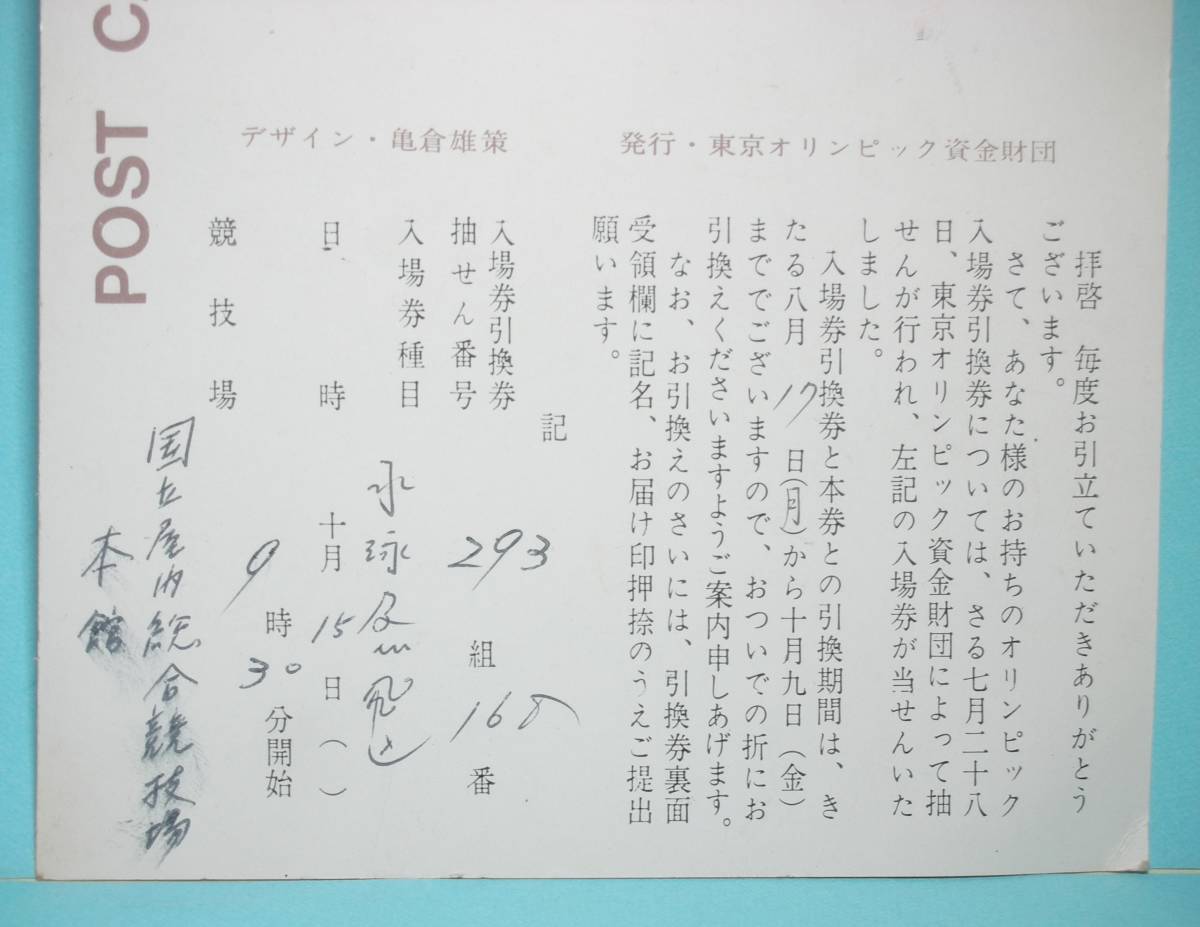 POST C
発行・東京オリンピック資金財団
デザイン・亀倉雄策
拝啓 毎度お引立ていただきありがとう
ございます。
さて、あなた様のお持ちのオリンピック
入場券引換券については、さる七月二十八
日、東京オリンピック資金財団によって抽
せんが行われ、左記の入場券が当せんいた
しました。
入場券引換券と本券との引換期間は、き
たる八月17日(月)から十月九日(金)
まででございますので、おついでの折にお
引換えくださいますようご案内申しあげます。
なお、お引換えのさいには、引換券裏面
受領欄に記名、お届け印押捺のうえご提出
願います。
記
入場券引換券
抽せん番号 293 組 168 番
入場券種目 水泳及飛込
日時 十月15日( )
9時30分開始
競技場 国立屋内総合競技場
本館